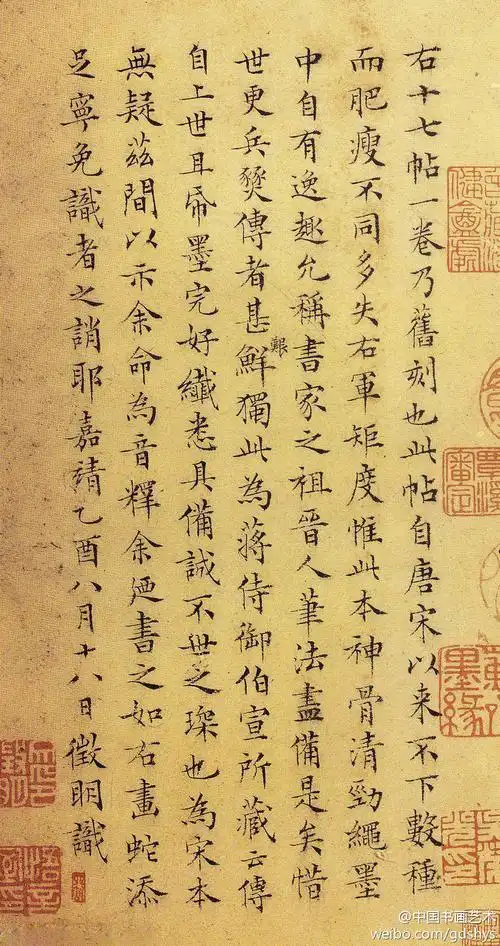 右十七帖一卷乃舊刻也此帖自唐宋以来不下數種
而肥瘦不同多失右軍矩度惟此本神骨清勁繩墨
中自有逸趣允稱書家之祖晉人筆法盡備是矣惜
世更兵燹傳者甚鮮獨此為蔣侍御伯宣所藏云傳
艱
自上世且帋墨完好纖悉具備誠不世之琛也為宋本
無疑茲間以示余命為音釋余廼書之如右畫蛇添
足寧免識者之誚耶嘉靖乙酉八月十八日徵明識
墨緣
@中国书画艺术
weibo.com/gdshys